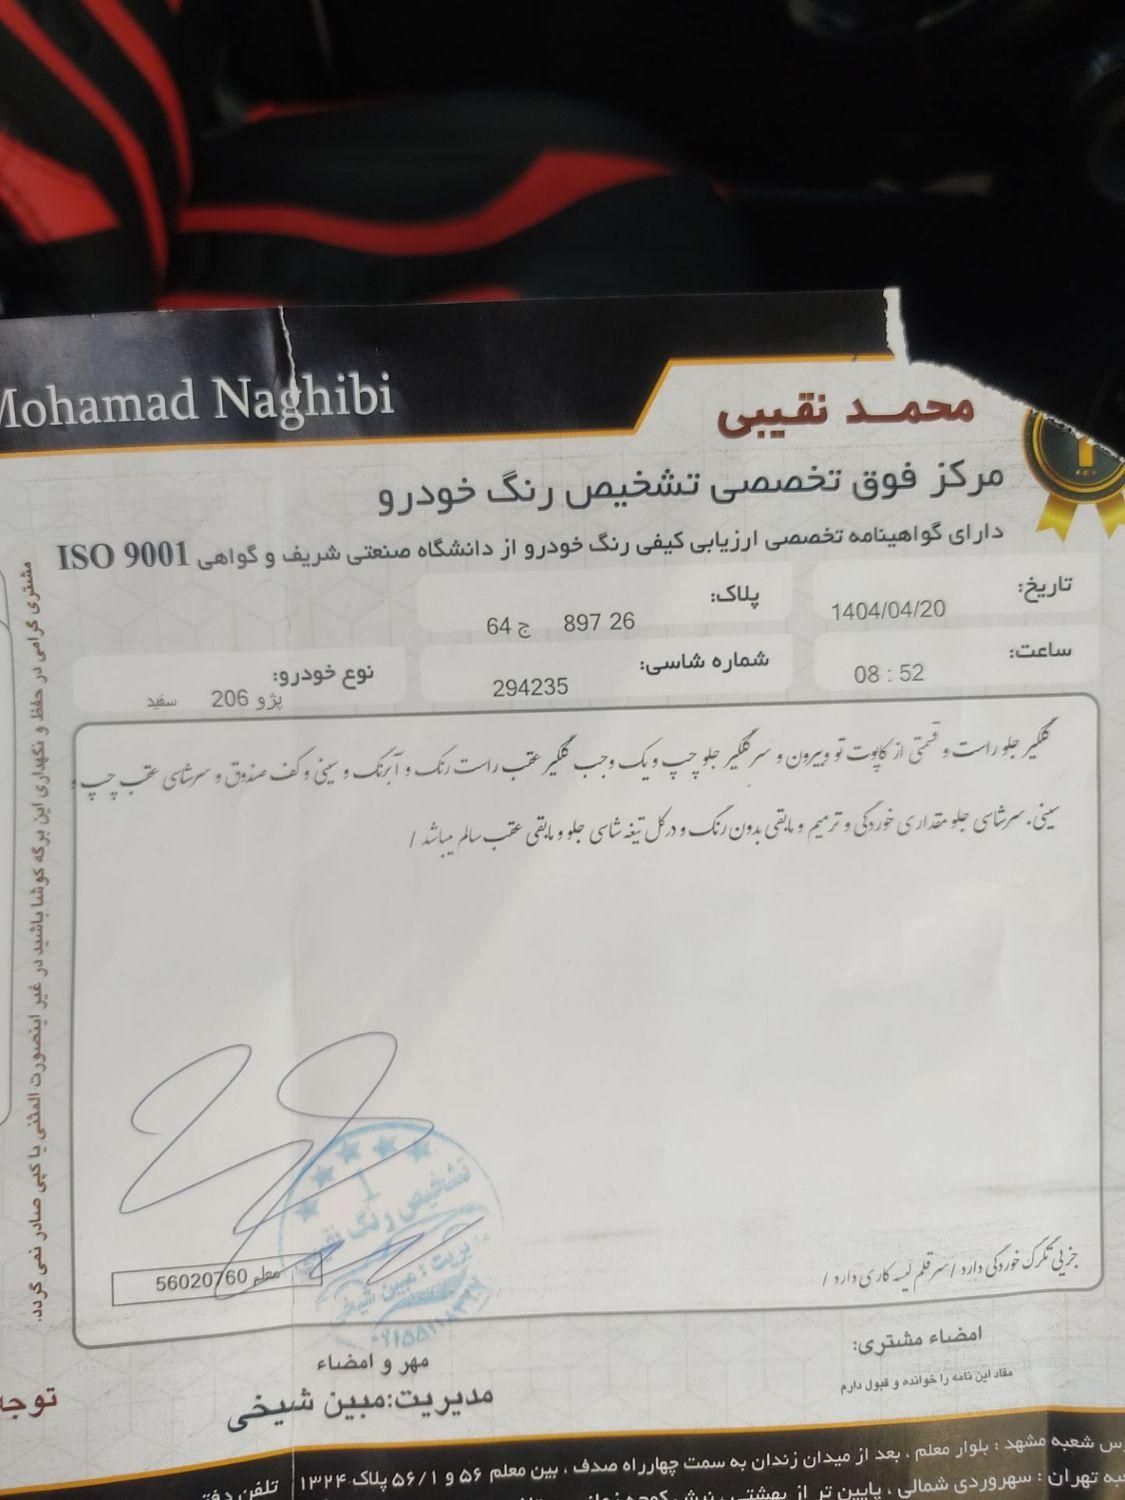 Mohamad Naghibi
محمد نقیبی
مرکز فوق تخصصی تشخیص رنگ خودرو
دارای گواهینامه تخصصی ارزیابی کیفی رنگ خودرو از دانشگاه صنعتی شریف و گواهی ISO 9001
تاریخ: 1404/04/20
پلاک: 26 897 ج 64
ساعت: 08 : 52
شماره شاسی: 294235
نوع خودرو: پژو 206 سفید
گلگیر جلو راست و قسمتی از کاپوت تو و بیرون و سر گلگیر جلو چپ و یک وجب گلگیر عقب راست رنگ و آبرنگ و سینی و کف صندوق و سرشاسی عقب چپ و
سینی . سرشاسی جلو مقداری خوردگی و ترمیم و مابقی بدون رنگ و در کل تیغه شاسی جلو و مابقی عقب سالم میباشد /
جزیی تگرگ خوردگی دارد / سر قلم لیسه کاری دارد /
معلم 56020760
تشخیص رنگ نقیبی
مدیریت : مبین شیخی
مهر و امضاء
مدیریت:مبین شیخی
امضاء مشتری:
مفاد این نامه را خوانده و قبول دارم
مشتری گرامی در حفظ و نگهداری این برگه کوشا باشید در غیر اینصورت المثنی یا کپی صادر نمی گردد.
توجه
شعبه مشهد : بلوار معلم ، بعد از میدان زندان به سمت چهارراه صدف ، بین معلم ۵۶ و ۵۶/۱ پلاک ۱۳۲۴ تلفن
تهران : سهروردی شمالی ، پایین تر از بهشتی ، نبش کوچه